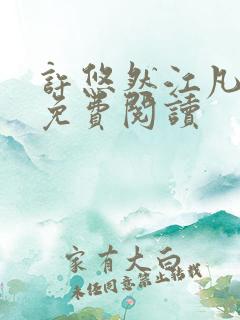 許悠然江凡
免費閱讀
家有大白
未經同意禁止轉載